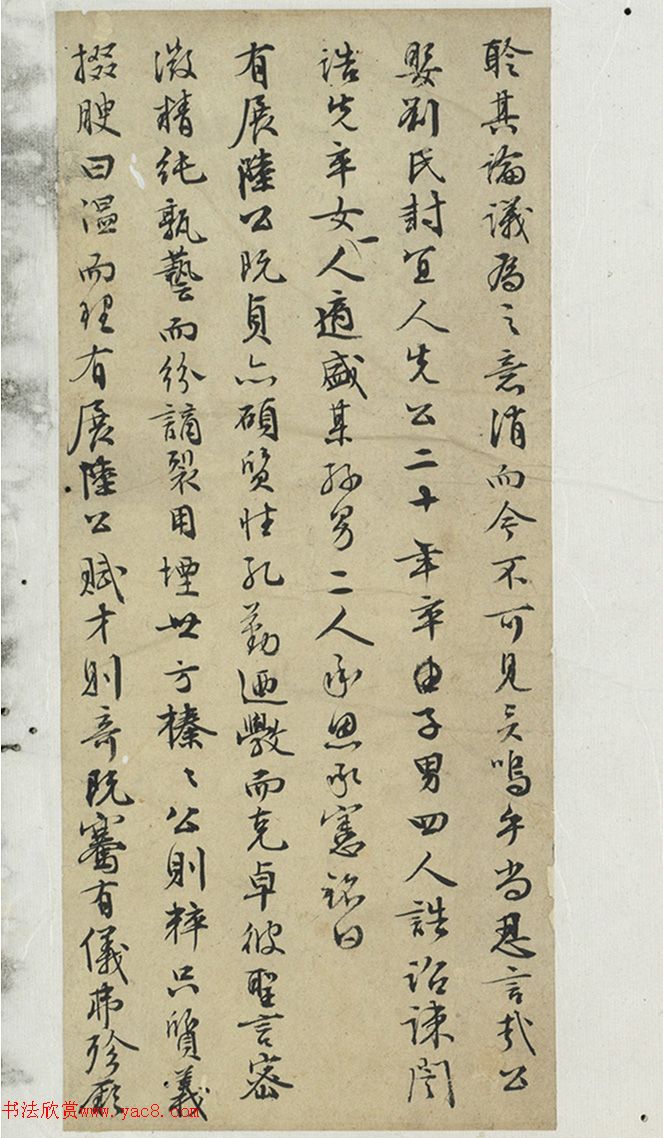 聆其論議为之意消而今不可見矣嗚乎尚忍言哉公
娶劉氏封宜人先公二十年卒子男四人誥詔諫訚
誥先卒女一人適盛某孫男二人承恩承憲銘曰
有展陸公既貞亦碩質性孔勤迺斅而克卓彼聖言密
微精純孰藝而紛謫裂用堙世方榛〻公則粹只質義
掇腴曰温而理有展陸公賦才則奇既騫有儀弗殄厥
书法欣赏 www.yac8.com